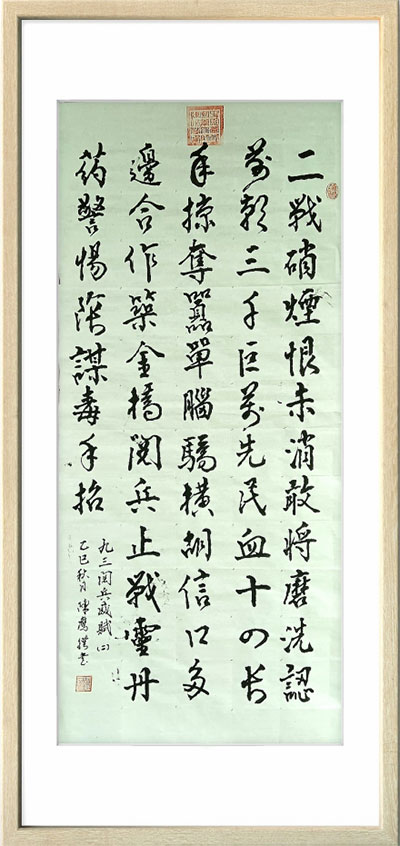 二戰硝煙恨未消敢將磨洗認
前朝三千巨萬先民血十四长
年掠奪囂單腦驕橫胡信口多
邊合作築金橋閱兵止戰靈丹
药警惕陰謀毒手招
九三閱兵感賦(二)
乙巳秋月陳書